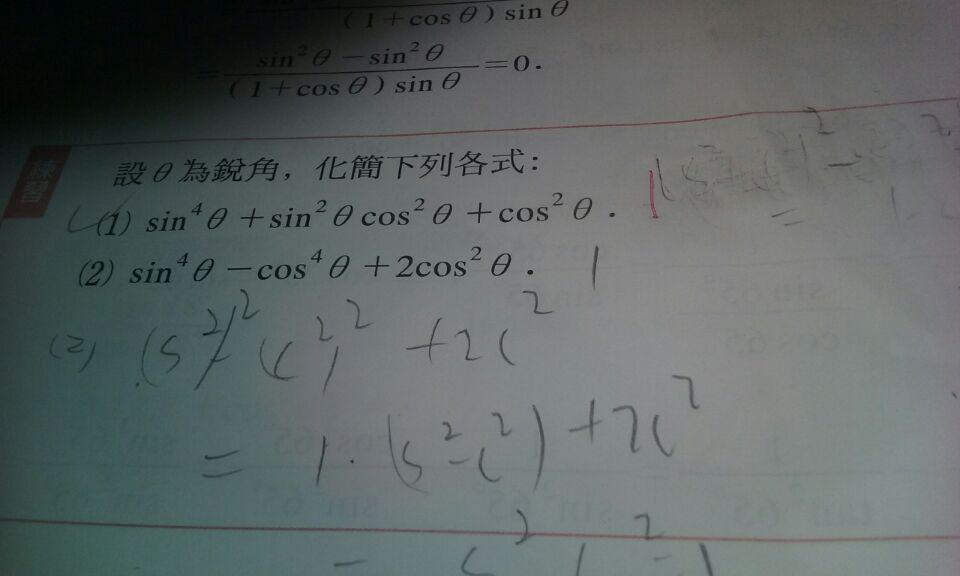 (1+cosθ)sinθ
= sin²θ-sin²θ / (1+cosθ)sinθ =0.
練習
設θ為銳角，化簡下列各式：
(1) sin⁴θ+sin²θcos²θ+cos²θ. 1
(2) sin⁴θ-cos⁴θ+2cos²θ. 1
(2) (s²)²-(c²)²+2c²
= 1·(s²-c²)+2c²